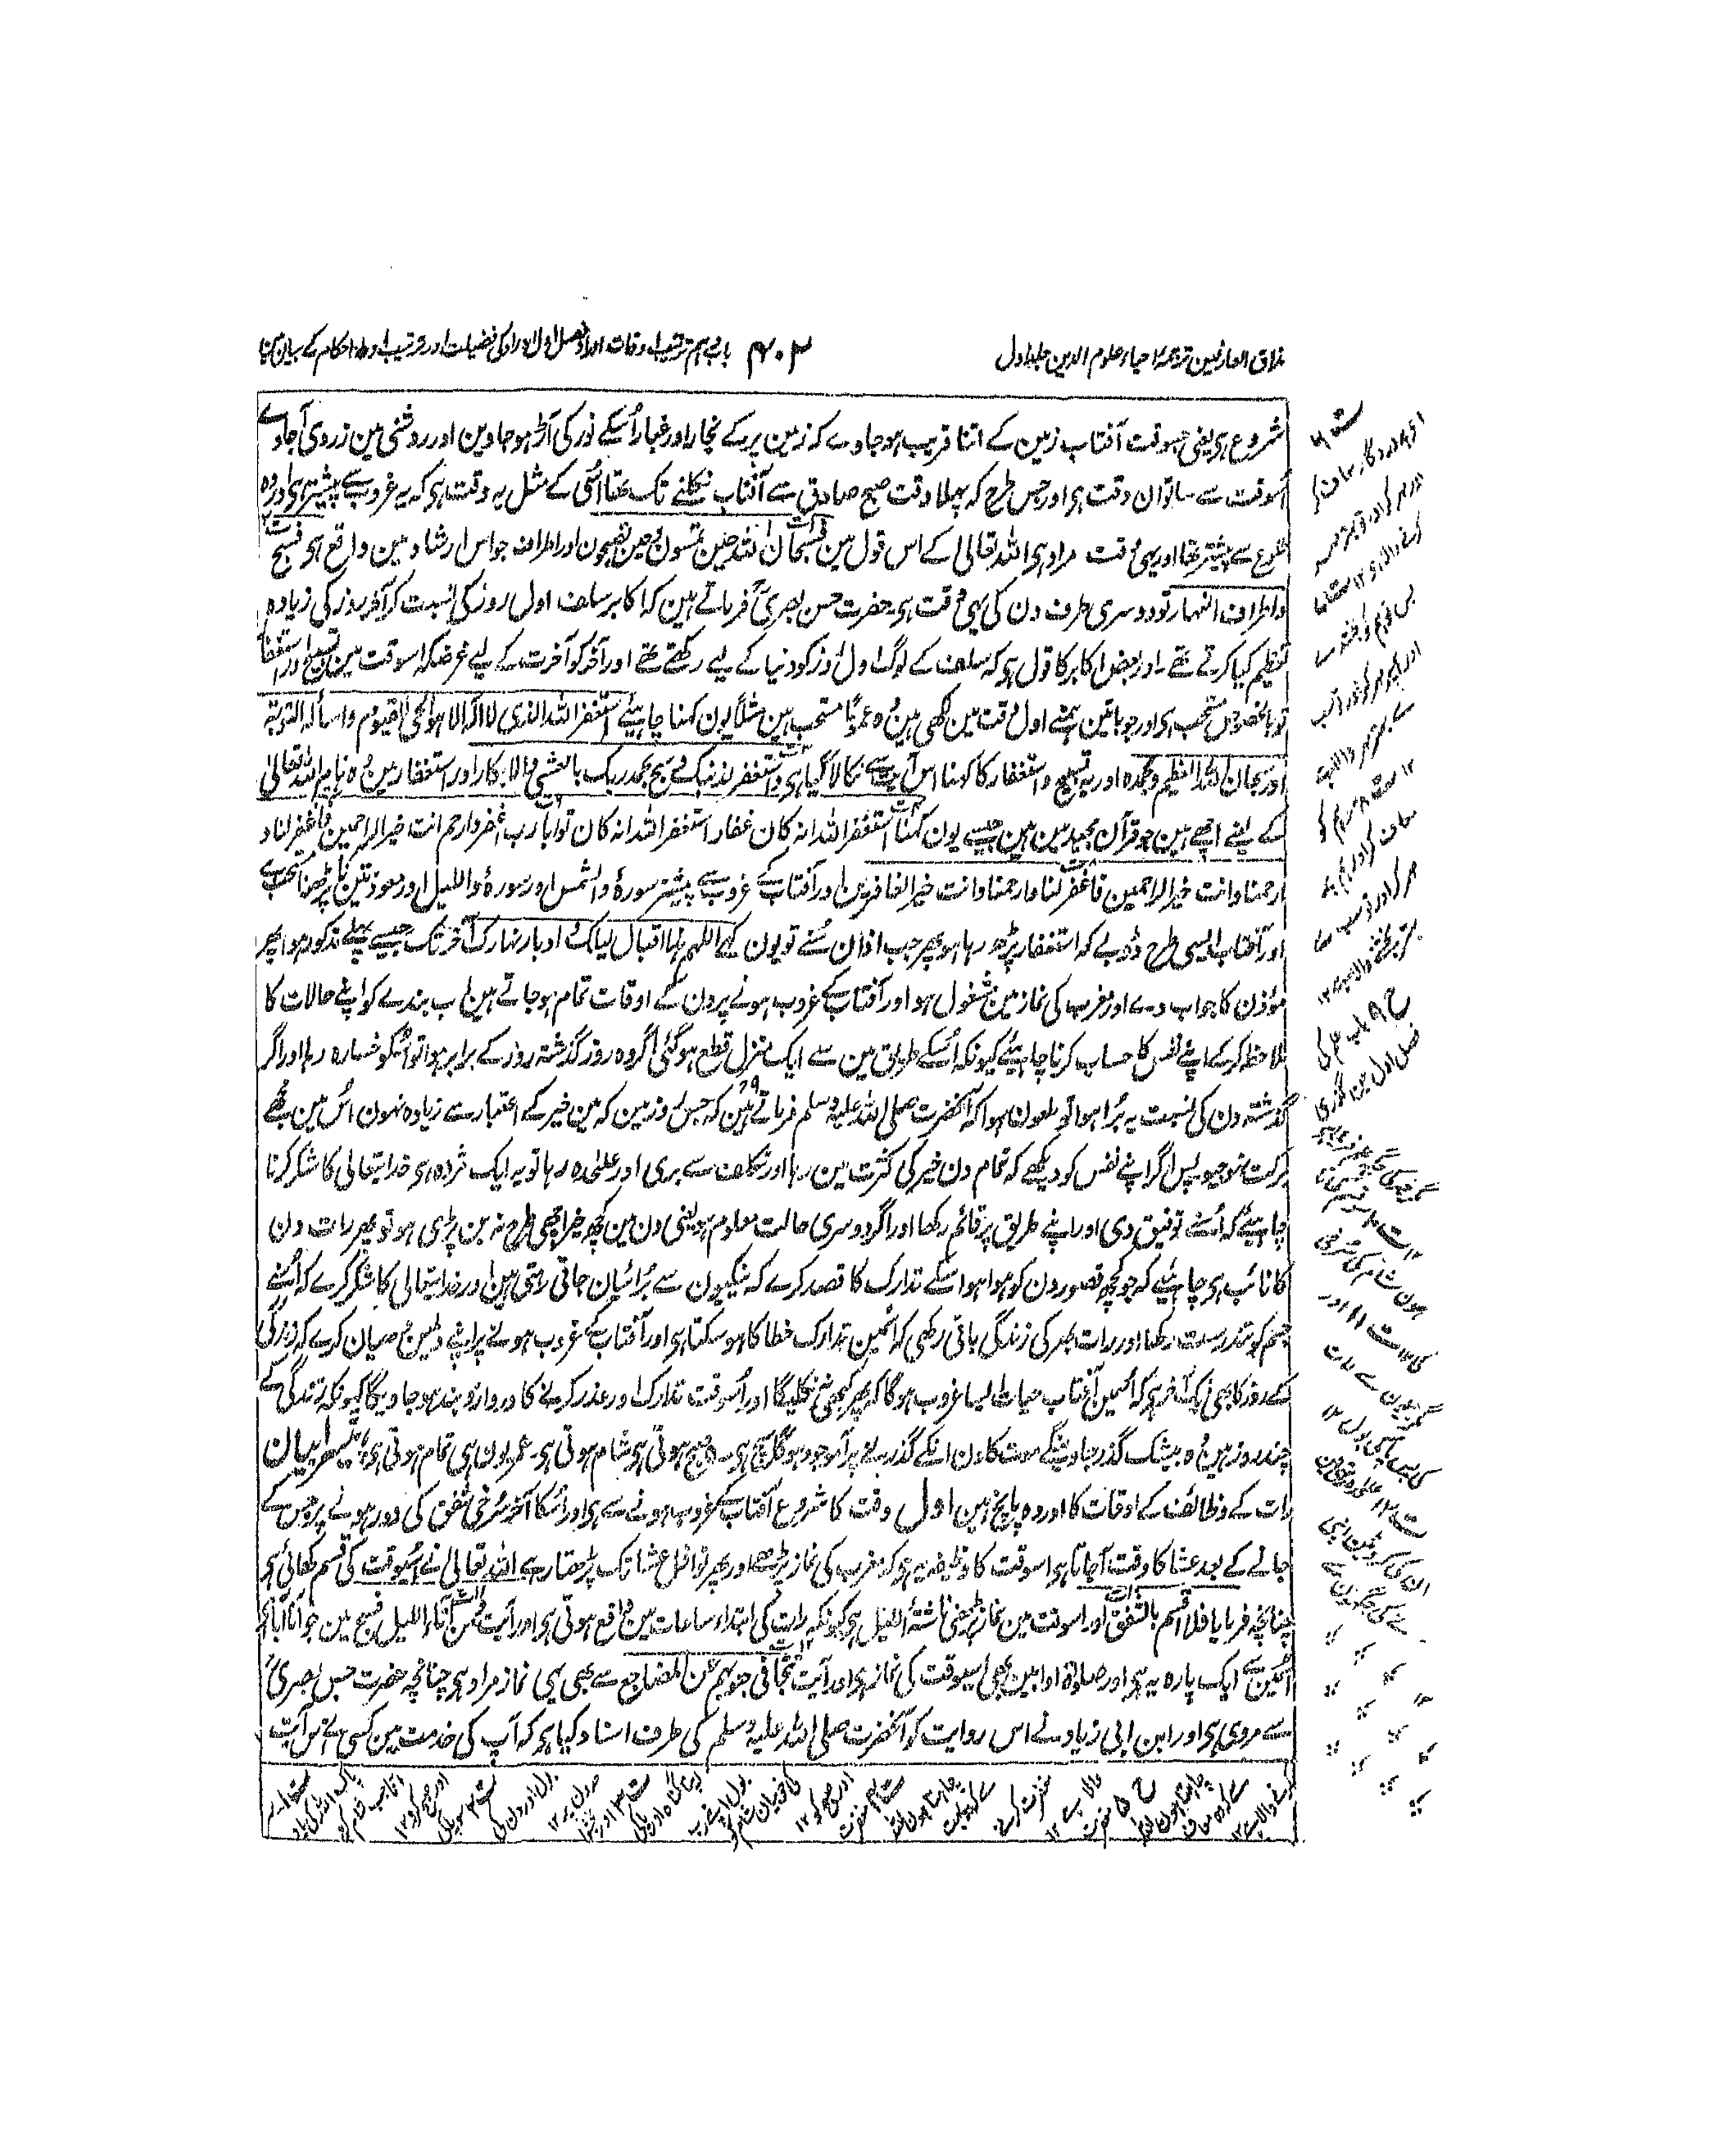 مذاق العارفین ترجمہ احیاء علوم الدین جلد اول
۴۰۲
باب دہم ترتیب اوقات اوراد فصل اول اوراد کی فضیلت اور ترتیب اور احکام کے بیان مین
شروع ہی یعنی جسوقت آفتاب زمین کے اتنا قریب ہو جاوے کہ زمین پر کے بخار اور غبار اُسکے نور کی آڑ ہو جاوین اور روشنی مین زردی آجاوے
اُسوقت سے ساتوان وقت ہی اور جس طرح کہ پہلا وقت صبح صادق سے آفتاب نکلنے تک تھا اسی کے مثل یہ وقت ہی کہ یہ غروب سے پیشتر ہی اور وہ
طلوع سے پیشتر تھا اور یہی وقت مراد ہی اللہ تعالی کے اس قول مین فسبحان اللہ حین تمسون وحین تصبحون اور اطراف جو اس ارشاد مین واقع ہی فسبح
واطراف النہار تو دوسری طرف دن کی یہی وقت ہی حضرت حسن بصری فرماتے ہین کہ اکابر سلف اول روز کی نسبت کر آخر روز کی زیادہ
تعظیم کیا کرتے تھے۔ اور بعض اکابر کا قول ہی کہ سلف کے لوگ اول روز کو دنیا کے لیے رکھتے تھے اور آخر کو آخرت کے لیے غرضکہ اسوقت مین تسبیح اور استغفار
تو بالخصوص مستحب ہی اور جو باتین ہمنے اول وقت مین لکھی ہین وہ عموماً مستحب ہین مثلاً یون کہنا چاہیئے استغفر اللہ الذی لا الہ الا ہو الحی القیوم واسألہ التوبۃ
اور سبحان اللہ العظیم وبحمدہ اور یہ تسبیح واستغفار کا کہنا اس آیت سے نکالا گیا ہی واستغفر لذنبک وسبح بحمد ربک بالعشی والابکار اور استغفار مین وہ نام اللہ تعالی
کے لینے اچھے ہین جو قرآن مجید مین ہین جیسے یون کہنا استغفر اللہ انہ کان غفارا استغفر اللہ انہ کان توابا رب اغفر وارحم وانت خیر الراحمین فاغفر لنا و
ارحمنا وانت خیر الراحمین فاغفر لنا وارحمنا وانت خیر الغافرین اور آفتاب کے غروب سے پیشتر سورۂ والشمس اور سورۂ واللیل اور معوذتین کا پڑھنا مستحب ہے
اور آفتاب ایسی طرح ڈوبے کہ استغفار پڑھ رہا ہو پھر جب اذان سُنے تو یون کہے اللہم ہذا اقبال لیلک وادبار نہارک آخر تک جیسے پہلے مذکور ہوا پھر
مؤذن کا جواب دے اور مغرب کی نماز مین مشغول ہو اور آفتاب کے غروب ہونے پر دن کے اوقات تمام ہو جاتے ہین اب بندے کو اپنے حالات کا
ملاحظہ کر کے اپنے نفس کا حساب کرنا چاہیئے کیونکہ اُسکے طریق مین سے ایک منزل قطع ہو گئی اگر وہ روز گذشتہ روز کے برابر ہوا تو اُسکو خسارہ رہا اور اگر
گذشتہ دن کی نسبت یہ بُرا ہوا تو ملعون ہوا کہ آنحضرت صلی اللہ علیہ وسلم فرماتے ہین کہ جس روز مین کہ مین خیر کے اعتبار سے زیادہ نہون اُس مین مجھے
برکت نہوجیو پس اگر اپنے نفس کو دیکھے کہ تمام دن خیر کی کثرت مین رہا اور تکلف سے بری اور علحدہ رہا تو یہ ایک مژدہ ہی خدا تعالی کا شکر کرنا
چاہیئے کہ اُسنے توفیق دی اور اپنے طریق پر قائم رکھا اور اگر دوسری حالت معلوم ہو یعنی دن مین کچھ خیر اچھی طرح نہ بن پڑی ہو تو پھر رات دن
کا نائب ہی چاہیئے کہ جو کچھ قصور دن کو ہوا ہو اسکے تدارک کا قصد کرے کہ نیکیون سے بُرائیان جاتی رہتی ہین اور خدا تعالی کا شکر کرے کہ اُسنے
جسم کو تندرست رکھا اور رات بھر کی زندگی باقی رکھی کہ اُسمین تدارک خطا کا ہو سکتا ہی اور آفتاب کے غروب ہونے پر اپنے دلمین دھیان کرے کہ زندگی
کے روز کا بھی ایک آخر ہی کہ اُسمین آفتاب حیات ایسا غروب ہوگا کہ پھر کبھی نہ نکلیگا اور اُسوقت تدارک اور عذر کرنے کا دروازہ بند ہو جاویگا کیونکہ زندگی کے
چند روز ہین وہ بیشک گذر جاوینگے موت کا دن انکے گذرنے پر آموجود ہوگا سچ ہی۔ صبح ہوتی ہی شام ہوتی ہی۔ عمر یون ہی تمام ہوتی ہی۔ تیسرا بیان
رات کے وظائف کے اوقات کا اور وہ پانچ ہین اول وقت کا شروع آفتاب کے غروب ہونے سے ہی اور اُسکا آخر سُرخی شفق کی دور ہونے پر جس کے
جانے کے بعد عشا کا وقت آجاتا ہی اسوقت کا وظیفہ یہ ہی کہ مغرب کی نماز پڑھے اور پھر نوافل عشا تک پڑھتا رہے اللہ تعالی نے اُسیوقت کی قسم کھائی ہی
چنانچہ فرمایا فلا اقسم بالشفق اور اسوقت مین نماز پڑھنی ناشئۃ اللیل ہی کیونکہ رات کی ابتداء ساعات مین واقع ہوتی ہی اور آیت ومن آناء اللیل فسبح مین جو آنا آیا ہی
اُسمین سے ایک پارہ یہ ہی اور صلوٰۃ اوابین بھی اسیوقت کی نماز ہی اور آیت تتجافی جنوبہم عن المضاجع سے بھی یہی نماز مراد ہی چنانچہ حضرت حسن بصری
سے مروی ہی اور ابن ابی زیاد نے اس روایت کو آنحضرت صلی اللہ علیہ وسلم کی طرف اسناد کیا ہی کہ آپ کی خدمت مین کسی نے اس آیت